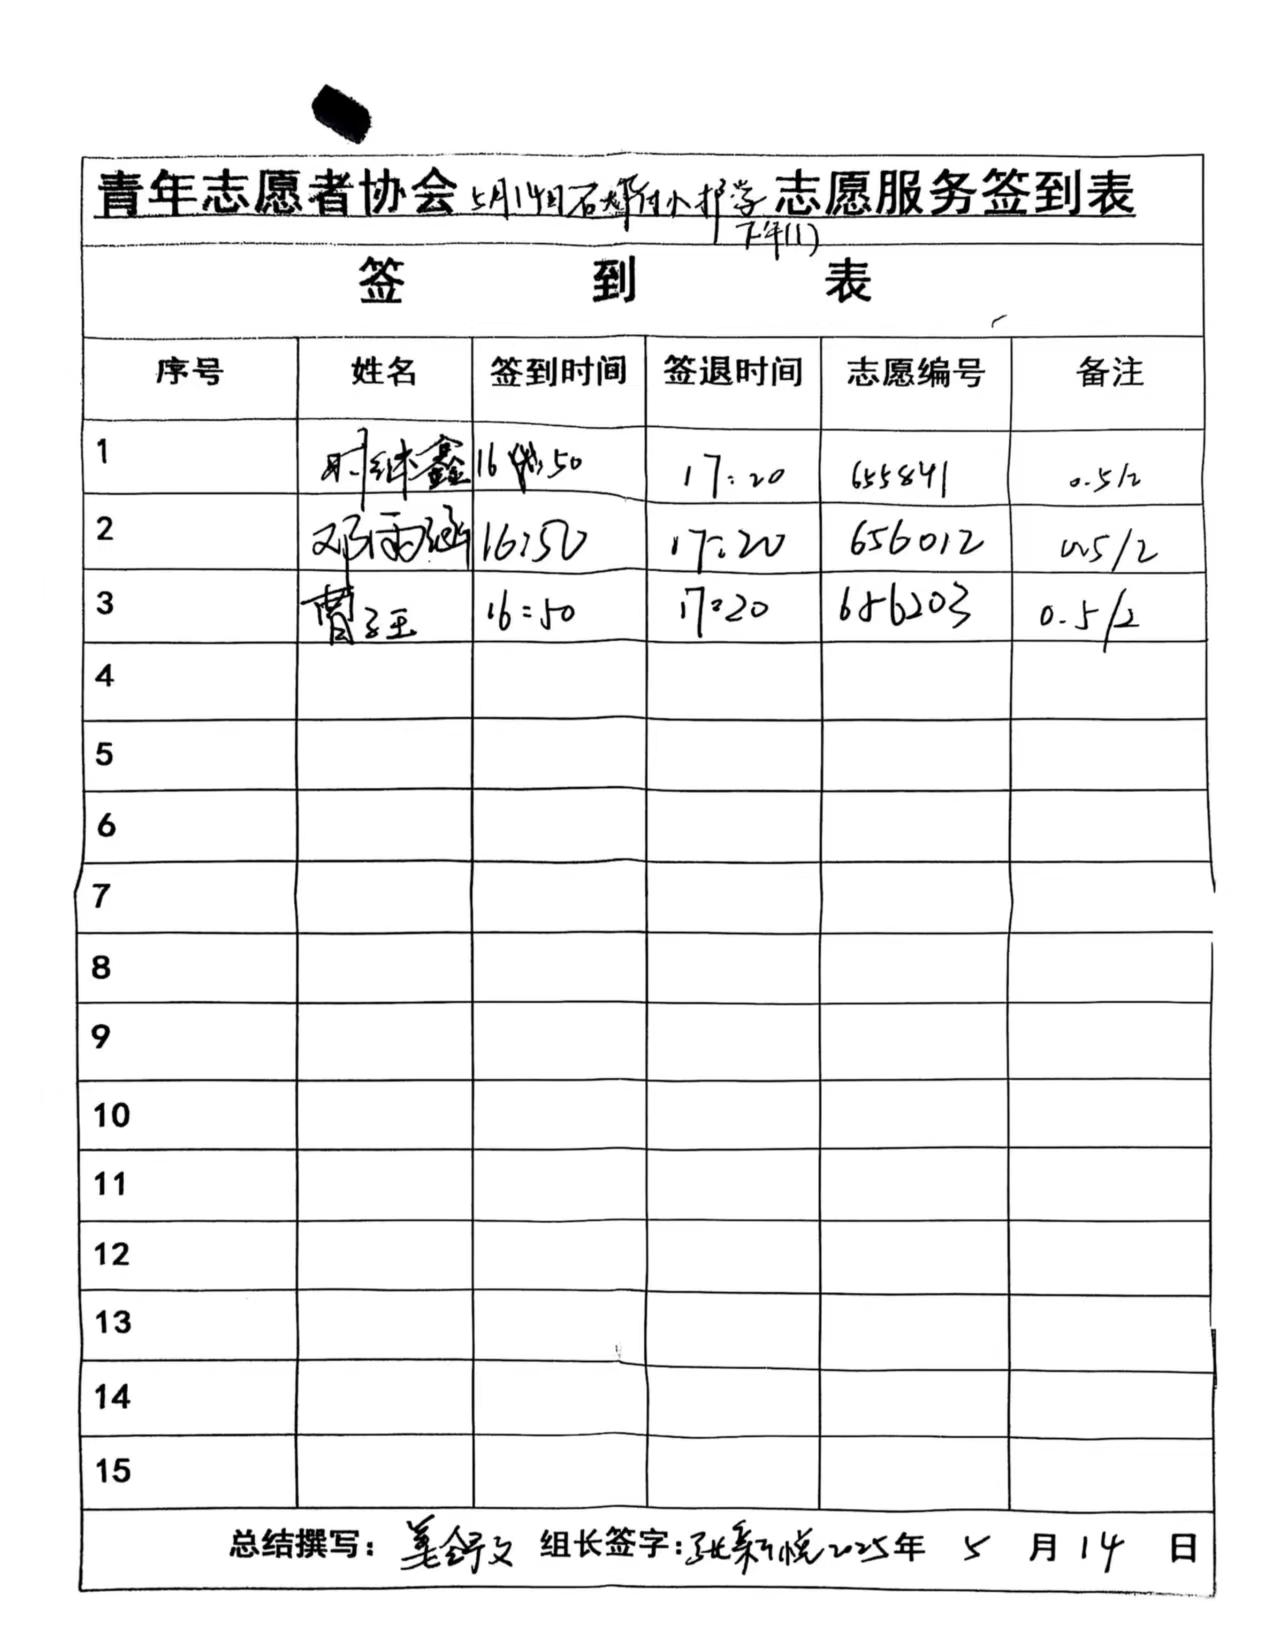 青年志愿者协会5月14日石 河小护学志愿服务签到表
下午(1)
签 到 表
序号 姓名 签到时间 签退时间 志愿编号 备注
1 时继鑫 16:50 17:20 655841 0.5/2
2 邓雨涵 16:50 17:20 656012 0.5/2
3 曹子玉 16:50 17:20 656203 0.5/2
4
5
6
7
8
9
10
11
12
13
14
15
总结撰写: 姜舒文 组长签字:张新悦 2025年 5 月 14 日